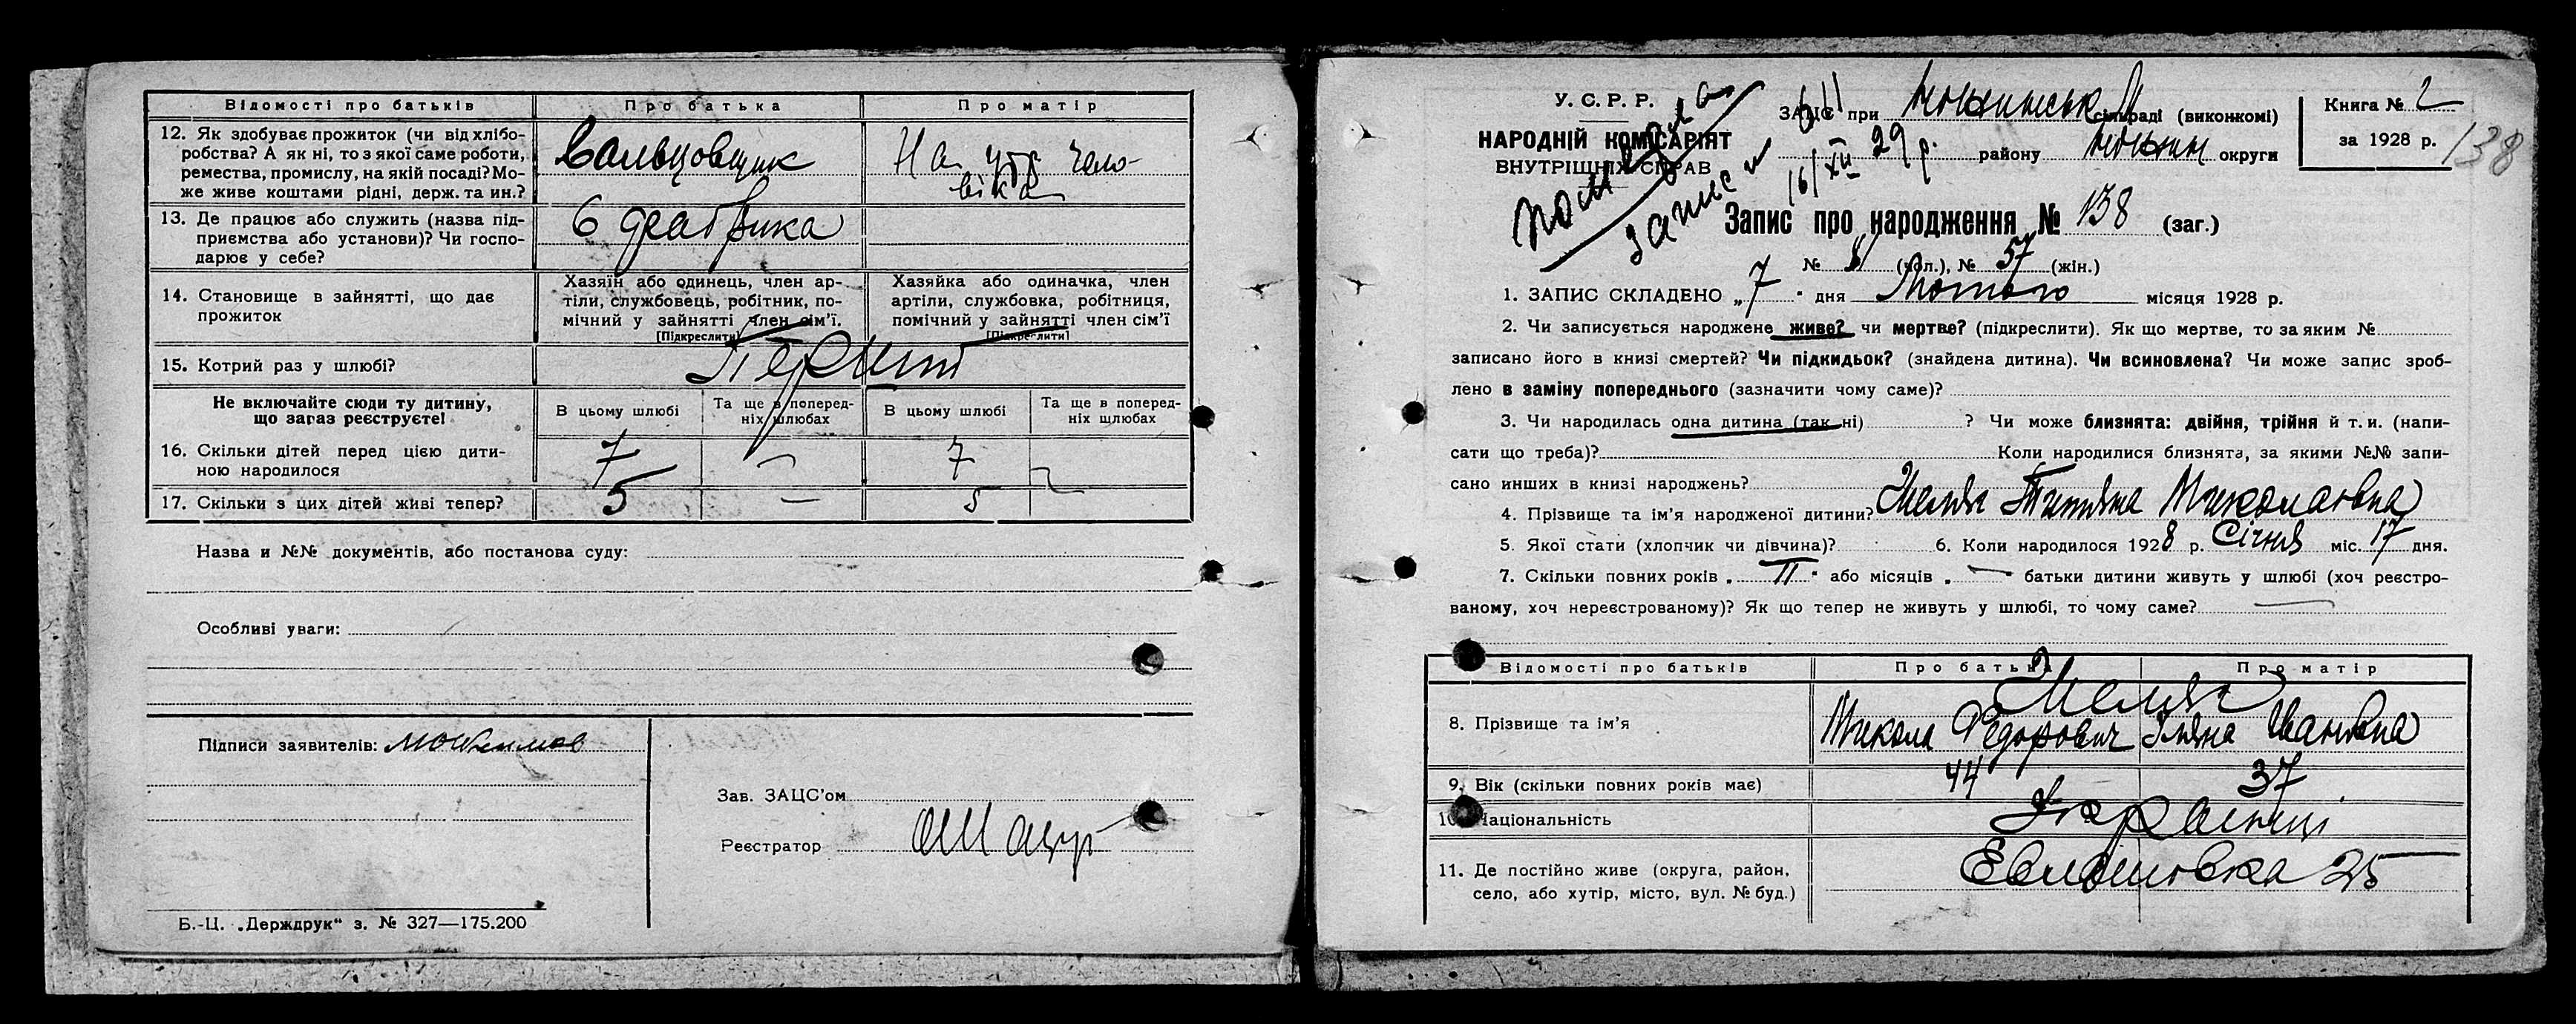 Відомості про батьків
Про батька
Про матір
12. Як здобуває прожиток (чи від хлібо-
робства? А як ні, то з якої саме роботи,
ремества, промислу, на якій посаді? Мо-
же живе коштами рідні, держ. та ин.?
Вальцовщик
На утр чоло-
віка
13. Де працює або служить (назва під-
приємства або установи)? Чи госпо-
дарює у себе?
6 фабрика
14. Становище в зайнятті, що дає
прожиток
Хазяїн або одинець, член ар-
тіли, службовець, робітник, по-
мічний у зайнятті член сім'ї.
[Підкреслити]
Хазяйка або одиначка, член
артіли, службовка, робітниця,
помічний у зайнятті член сім'ї
[Підкреслити]
15. Котрий раз у шлюбі?
Перший
Не включайте сюди ту дитину,
що зараз реєструєте!
В цьому шлюбі
Та ще в поперед-
ніх шлюбах
В цьому шлюбі
Та ще в поперед-
ніх шлюбах
16. Скільки дітей перед цією дити-
ною народилося
7 — 7 —
17. Скільки з цих дітей живі тепер?
5 — 5
Назва и №№ документів, або постанова суду:
Особливі уваги:
Підписи заявителів:
Зав. ЗАЦС'ом
Реєстратор
Б.-Ц. „Держдрук" з. № 327—175.200
У. С. Р. Р.
НАРОДНІЙ КОМІСАРІЯТ
ВНУТРІШНІХ СПРАВ
записи
16/XII 29 р.
ЗАЦС при сільраді (виконкомі)
району округи
Книга № 2
за 1928 р.
138
Запис про народження № 138 (заг.)
№ (чол.), № 57 (жін.)
1. ЗАПИС СКЛАДЕНО „ 7 " дня Лютого місяця 1928 р.
2. Чи записується народжене живе? чи мертве? (підкреслити). Як що мертве, то за яким №
записано його в книзі смертей? Чи підкидьок? (знайдена дитина). Чи всиновлена? Чи може запис зроб-
лено в заміну попереднього (зазначити чому саме)?
3. Чи народилась одна дитина (так ні) ? Чи може близнята: двійня, трійня й т. и. (напи-
сати що треба)? Коли народилися близнята, за якими №№ запи-
сано инших в книзі народжень?
4. Прізвище та ім'я народженої дитини? Тетяна Миколаєвна
5. Якої стати (хлопчик чи дівчина)? 6. Коли народилося 1928 р. Січня міс. 17 дня.
7. Скільки повних років „ 11 " або місяців „ — " батьки дитини живуть у шлюбі (хоч реєстро-
ваному, хоч нереєстрованому)? Як що тепер не живуть у шлюбі, то чому саме? —
Відомості про батьків
Про батька
Про матір
8. Прізвище та ім'я
Микола Федорович
Іванівна
9. Вік (скільки повних років має)
44
37
10. Національність
Українці
11. Де постійно живе (округа, район,
село, або хутір, місто, вул. № буд.)
Євлашовка 25